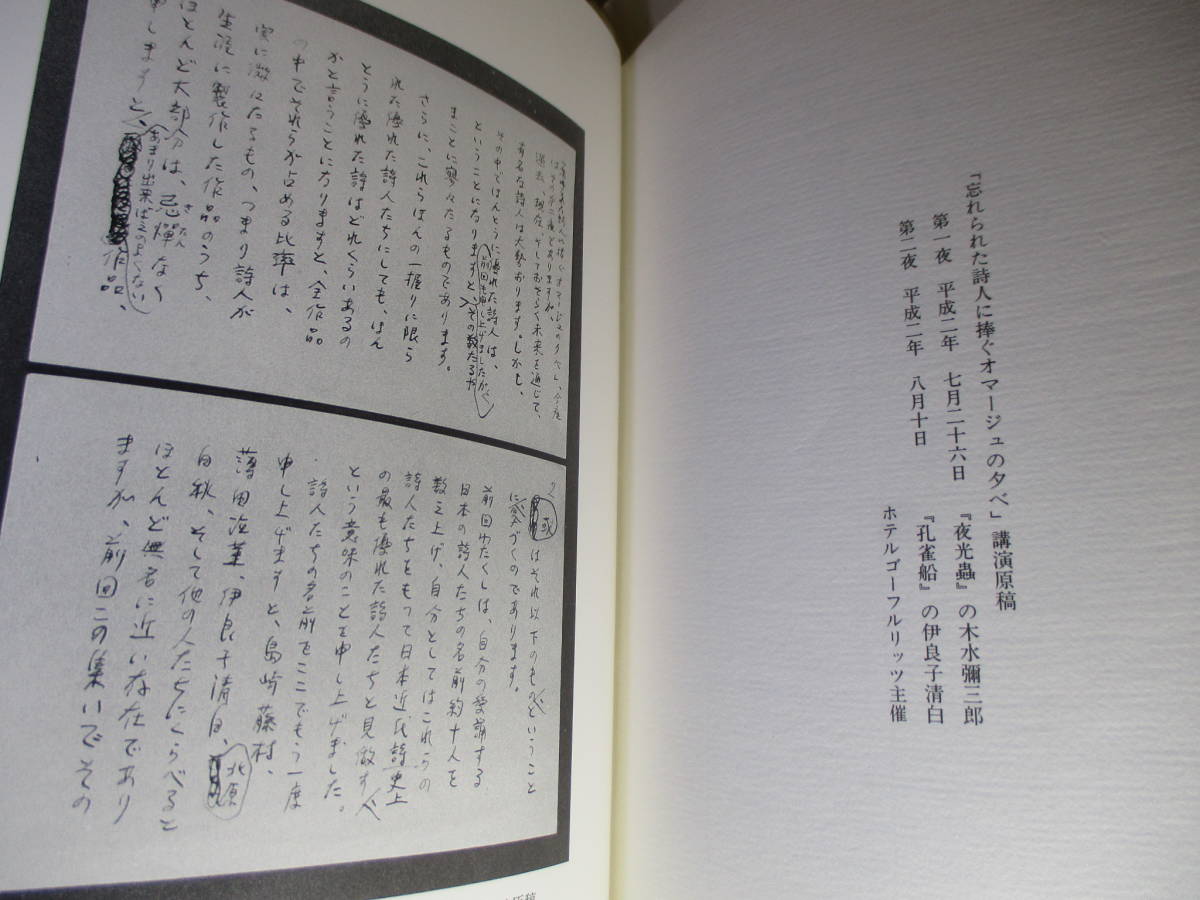 「忘れられた詩人に捧ぐオマージュの夕べ」講演原稿
第一夜 平成二年 七月二十六日 『夜光蟲』の木水彌三郎
第二夜 平成二年 八月十日 『孔雀船』の伊良子清白
ホテルゴーフルリッツ主催
過去、現在、そしておそらく未来を通じて、
有名な詩人は大勢おります。しかし、
その中でほんとうに優れた詩人は、
前回も申し上げましたが
ということになりますと、その数たるや
まことに寥々たるものであります。
さらに、これらほんの一握りに限ら
れた優れた詩人たちにしても、ほん
とうに優れた詩はどれくらいあるの
かと言うことになりますと、全作品
の中でそれらが占める比率は、
実に微々たるもの、つまり詩人が
生涯に製作した作品のうち、
ほとんど大部分は、忌憚なく
申しますと、
あまり出来ばえのよくない作品、
2
或はそれ以下のものということ
に気づくのであります。
前回わたくしは、自分の愛誦する
日本の詩人たちの名前約十人を
数え上げ、自分としてはこれらの
詩人たちをもって日本近代詩史上
の最も優れた詩人たちと見做す
という意味のことを申し上げました。
詩人たちの名前をここでもう一度
申し上げますと、島崎藤村、
薄田泣菫、伊良子清白、北原
白秋、そして他の人たちにくらべると
ほとんど無名に近い存在であり
ますが、前回この集いでその